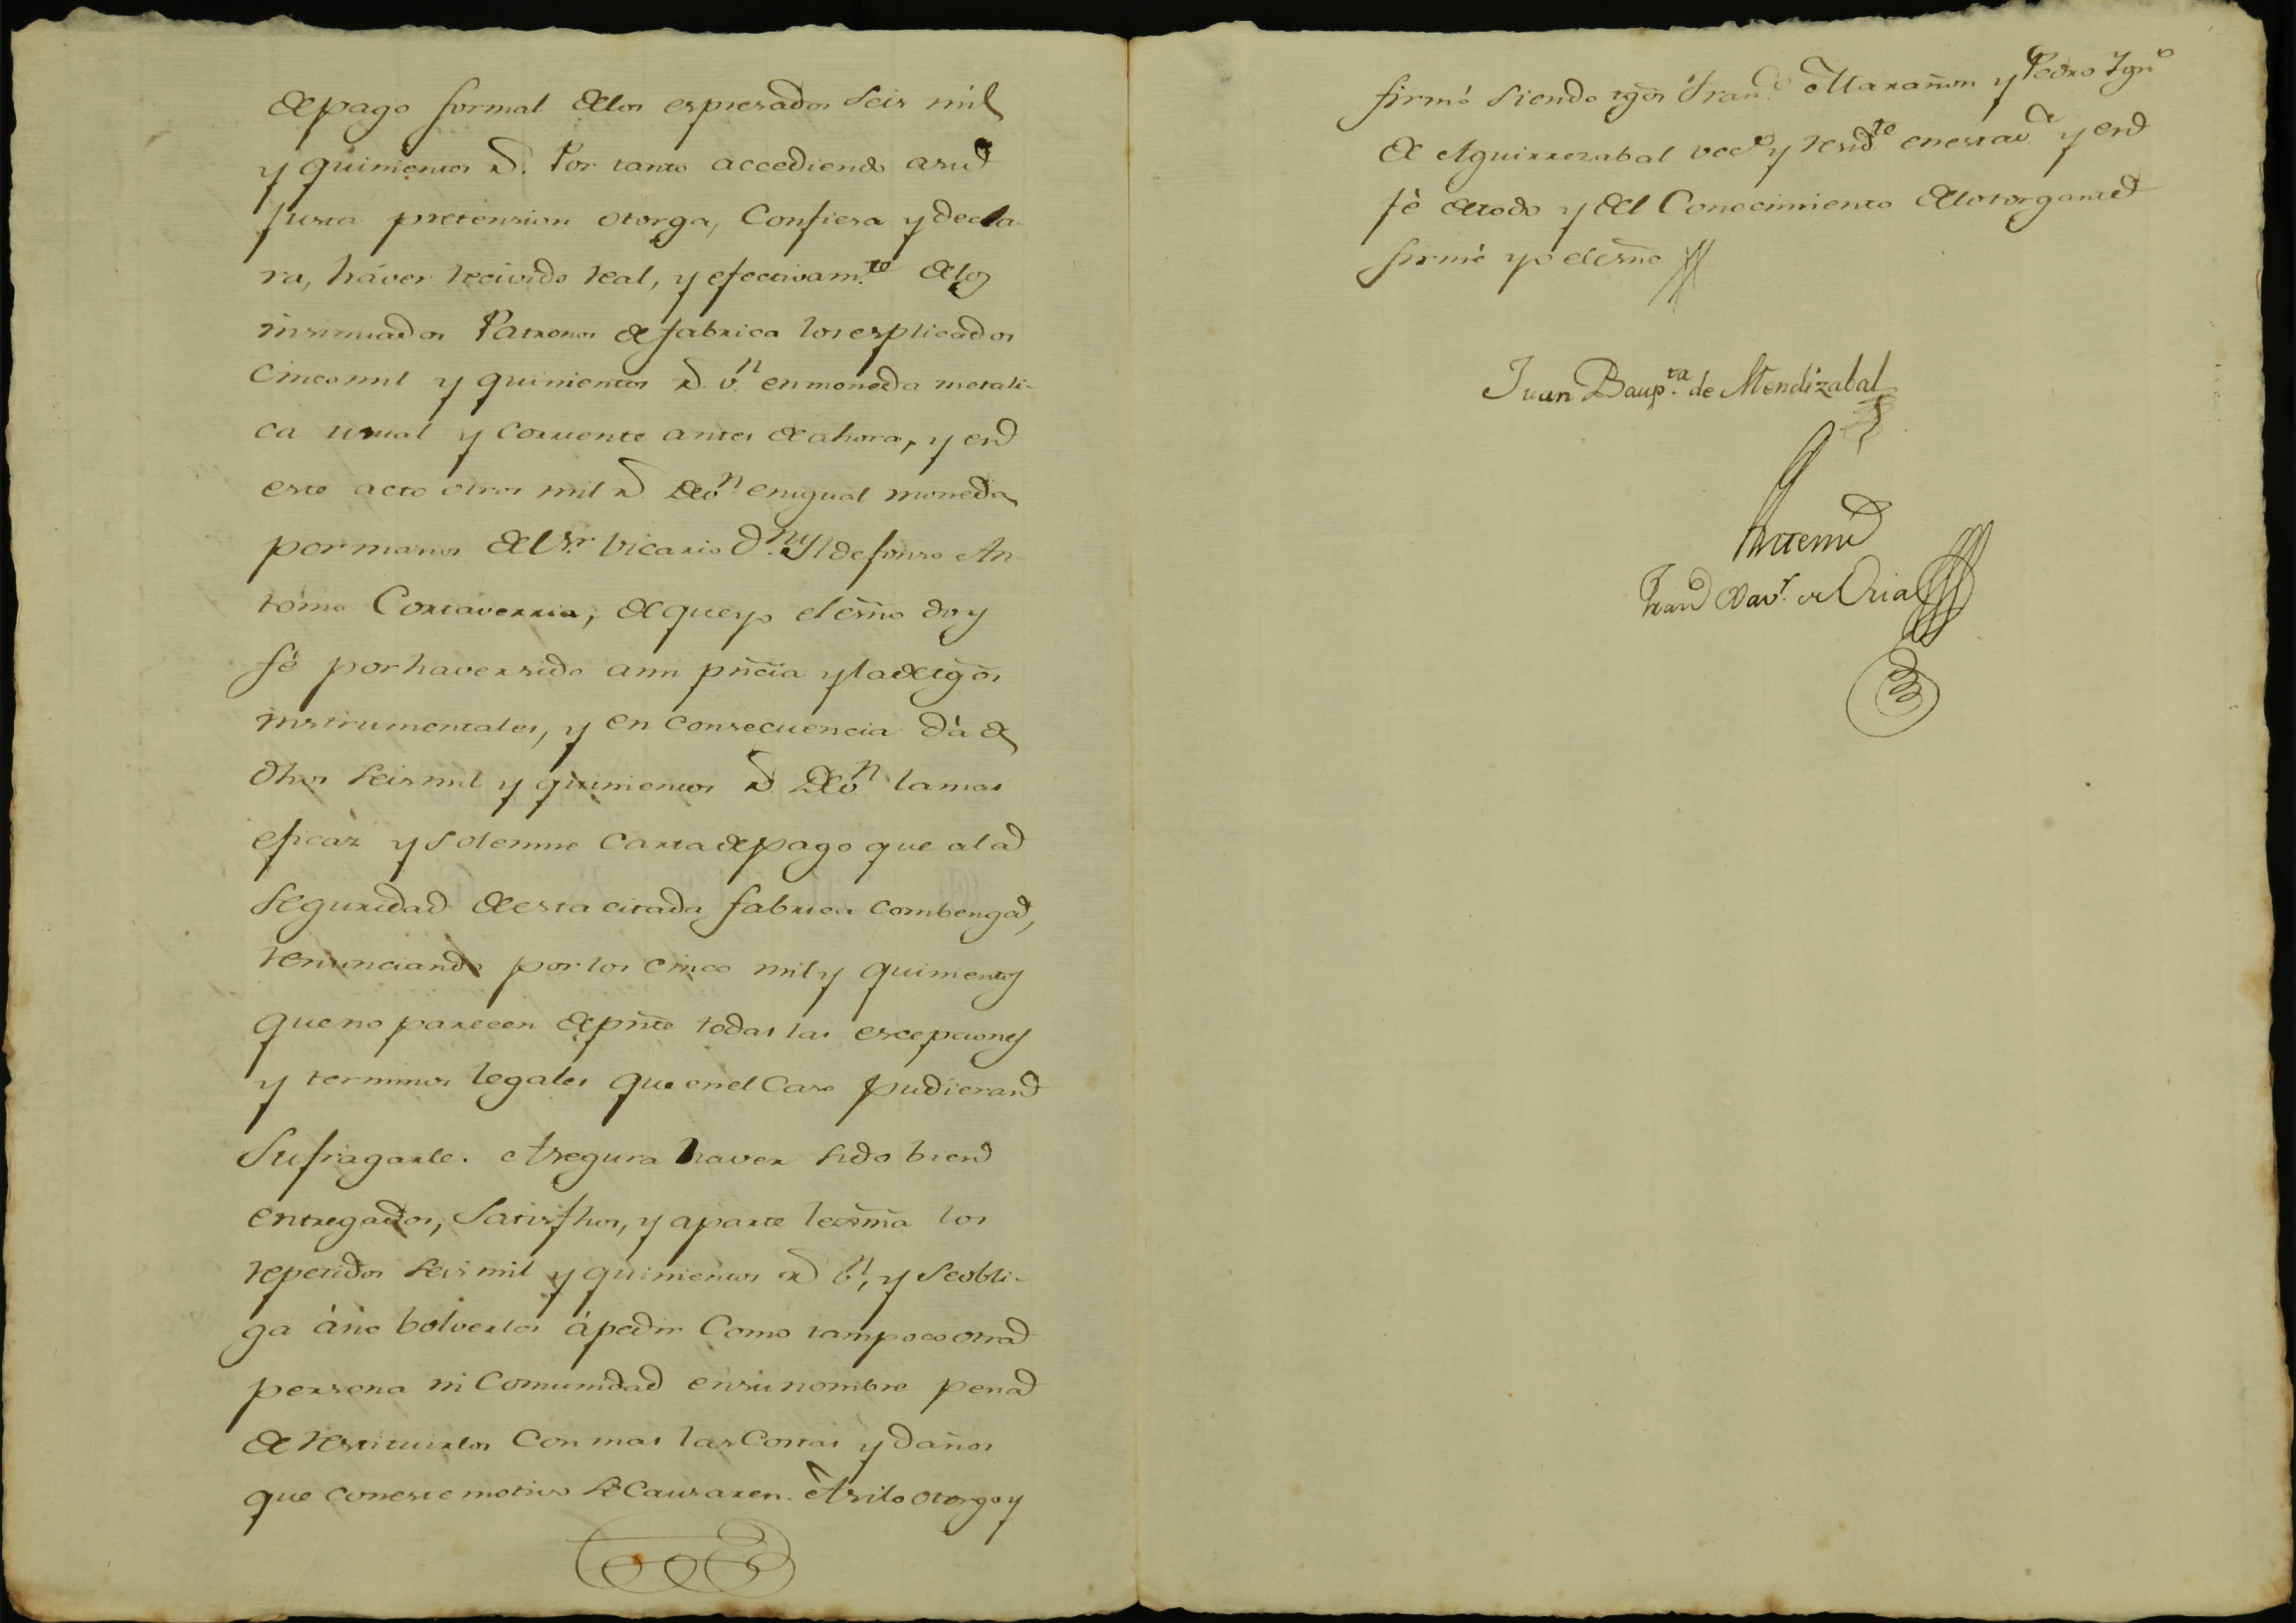 de pago formal de los espresados seis mil
y quinientos r.s Por tanto accediendo a su
justa pretension otorga, Confiesa y decla-
ra, háver recivido real, y efectivam.te de los
insinuados Patronos de fabrica los esplicados
Cinco mil y quinientos r.s v.n en moneda metali-
ca usual y corriente antes de ahora, y en
este acto otros mil r.s de v.n en igual moneda
por manos del S.r Vicario D.n Yldefonso An-
tonio Cortaverria, de que yo el es͞no doy
fé por haver sido a mi p͞ncia y la de tg͞os
instrumentales, y en consecuencia dá de
dhos seis mil y quinientos r.s de v.n la mas
eficaz y solemne Carta de pago que a la
seguridad de esta citada fabrica combenga,
renunciando por los cinco mil y quinientos
que no parecen de p͞nte todas las escepciones
y terminos legales que en el Caso pudieran
Sufragarle. Asegura haver sido bien
entregados, Satisfhos, y a parte lex͞ma los
repetidos seis mil y quinientos r.s v.n, y se obli-
ga á no bolverlos á pedir Como tampoco otra
persona ni Comunidad en su nombre pena
de restituirlos Con mas las Costas y daños
que con este motivo se Causaren. Asi lo otorgo y
firmó siendo tg͞os Fran.co Marañon y Pedro Ygn.o
de Aguirrezabal vec.o y resid.te en esta v.a y en
fé de todo y del Conocimiento del otorgante
firmé yo el es͞no
Juan Baup.ta de Mendizabal
Antemi
Fran.co Xav.r de Oria